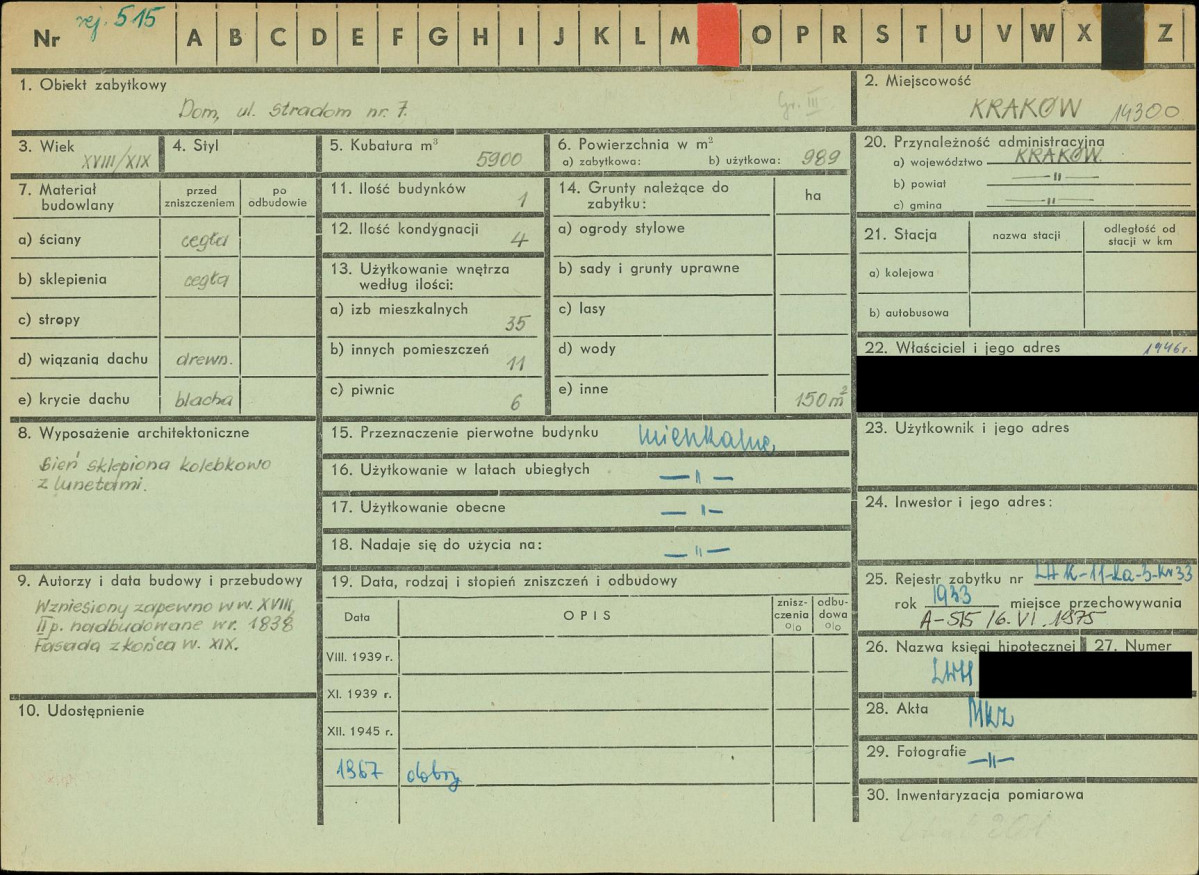 Nr rej. 515 A B C D E F G H I J K L M O P R S T U V W X Z
1. Obiekt zabytkowy
Dom, ul. Stradom nr 7.
Gr. III
2. Miejscowość
KRAKÓW 14300
3. Wiek
XVIII/XIX
4. Styl
5. Kubatura m³
5900
6. Powierzchnia w m²
a) zabytkowa: b) użytkowa: 989
7. Materiał budowlany
przed zniszczeniem
po odbudowie
a) ściany cegła
b) sklepienia cegła
c) stropy
d) wiązania dachu drewn.
e) krycie dachu blacha
8. Wyposażenie architektoniczne
Sień sklepiona kolebkowo
z lunetami.
9. Autorzy i data budowy i przebudowy
Wzniesiony zapewno w w. XVIII,
II p. nadbudowane w r. 1838
Fasada z końca w. XIX.
10. Udostępnienie
11. Ilość budynków
1
12. Ilość kondygnacji
4
13. Użytkowanie wnętrza
według ilości:
a) izb mieszkalnych
35
b) innych pomieszczeń
11
c) piwnic
6
14. Grunty należące do
zabytku:
ha
a) ogrody stylowe
b) sady i grunty uprawne
c) lasy
d) wody
e) inne 150 m²
15. Przeznaczenie pierwotne budynku mieszkalne
16. Użytkowanie w latach ubiegłych — " —
17. Użytkowanie obecne — " —
18. Nadaje się do użycia na: — " —
19. Data, rodzaj i stopień zniszczeń i odbudowy
Data
OPIS
zniszczenia %
odbudowa %
VIII. 1939 r.
XI. 1939 r.
XII. 1945 r.
1967 dobry
20. Przynależność administracyjna
a) województwo KRAKÓW
b) powiat — " —
c) gmina — " —
21. Stacja
nazwa stacji
odległość od
stacji w km
a) kolejowa
b) autobusowa
22. Właściciel i jego adres 1946 r.
23. Użytkownik i jego adres
24. Inwestor i jego adres:
25. Rejestr zabytku nr
rok 1933 miejsce przechowywania
A-515 /6. VI. 1975
26. Nazwa księgi hipotecznej
LWH
27. Numer
28. Akta MKZ
29. Fotografie — " —
30. Inwentaryzacja pomiarowa